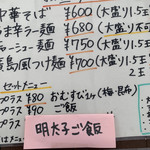 中華そば ¥600(大盛り1.5玉
うま辛ラーメン ¥680(大盛り不可
ラーショーメン ¥750(大盛り1.5玉
広島風つけ麺 ¥700(大盛り1.5玉
2玉
セットメニュー
プラス ¥80 おむすび2ヶ(梅・昆布)
プラス ¥90 ご飯
明太子ご飯